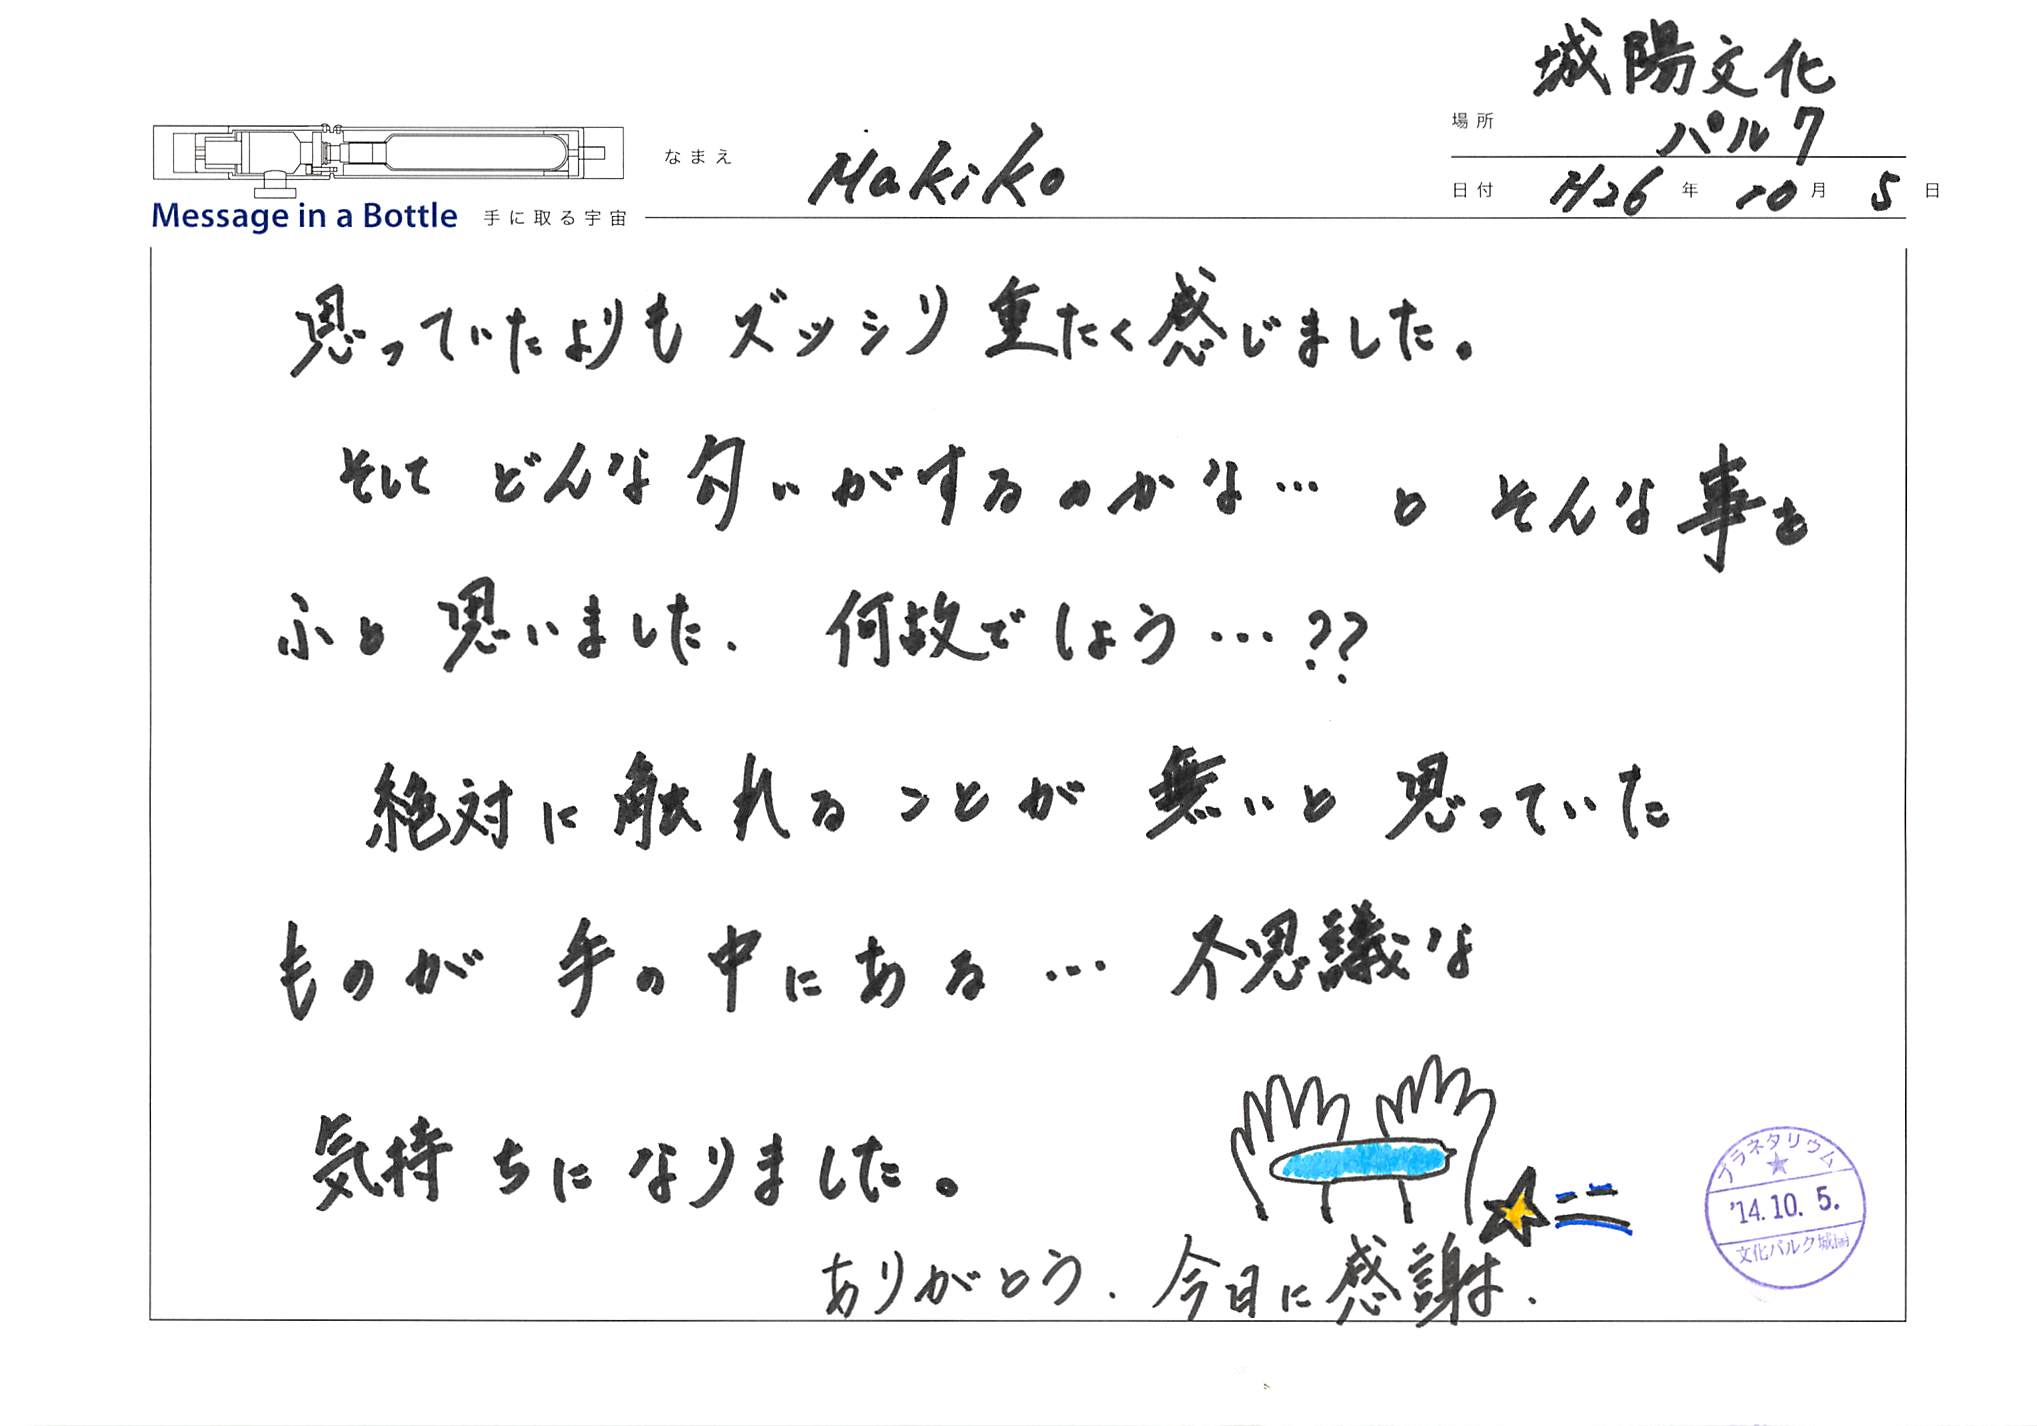 城陽文化
場所 パルク
なまえ Makiko
日付 H26 年 10 月 5 日
Message in a Bottle 手に取る宇宙
思っていたよりも ズッシリ 重たく感じました。
そして どんな 匂いがするのかな… と そんな事を
ふと 思いました. 何故でしょう…??
絶対に 触れることが 無いと 思っていた
ものが 手の中にある… 不思議な
気持ちになりました。
ありがとう. 今日に感謝.
プラネタリウム
★
'14.10. 5.
文化パルク城陽